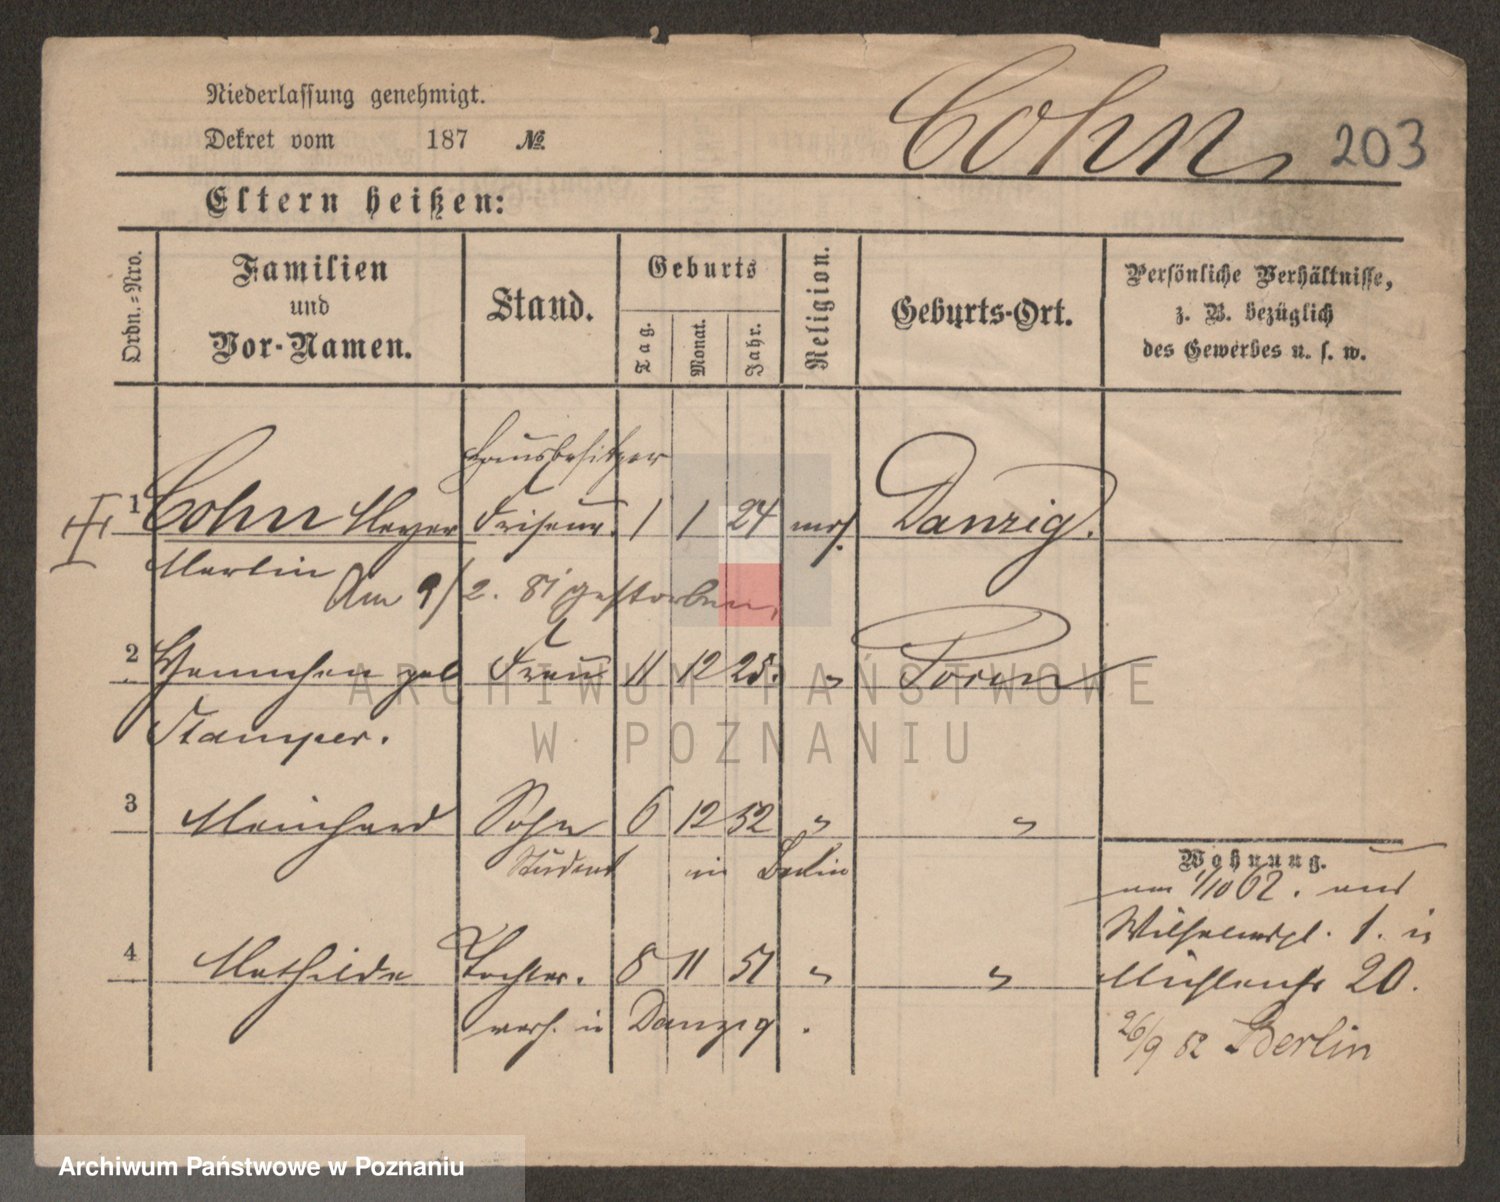 Niederlassung genehmigt.
Dekret vom 187 №
Cohn 203
Eltern heißen:
Ordn.=Nro.
Familien
und
Vor-Namen.
Stand.
Geburts
Tag.
Monat.
Jahr.
Religion.
Geburts-Ort.
Persönliche Verhältnisse,
z. B. bezüglich
des Gewerbes u. s. w.
Hausbesitzer
1 Cohn Meyer Friseur. 1 1 24 mos. Danzig.
Martin
Am 9/2. 81 gestorben,
2 Hannchen geb Frau 11 12 25. " Posen
Stamper.
3 Meinhard Sohn 6 12 52 " "
Student in Berlin
4 Mathilde Tochter. 8 11 51 " "
verh. in Danzig.
Wohnung.
am 1/10 62.
Wilhelmspl. 1. in
Mühlenstr 20.
26/9 82 Berlin
ARCHIWUM PAŃSTWOWE
W POZNANIU
Archiwum Państwowe w Poznaniu